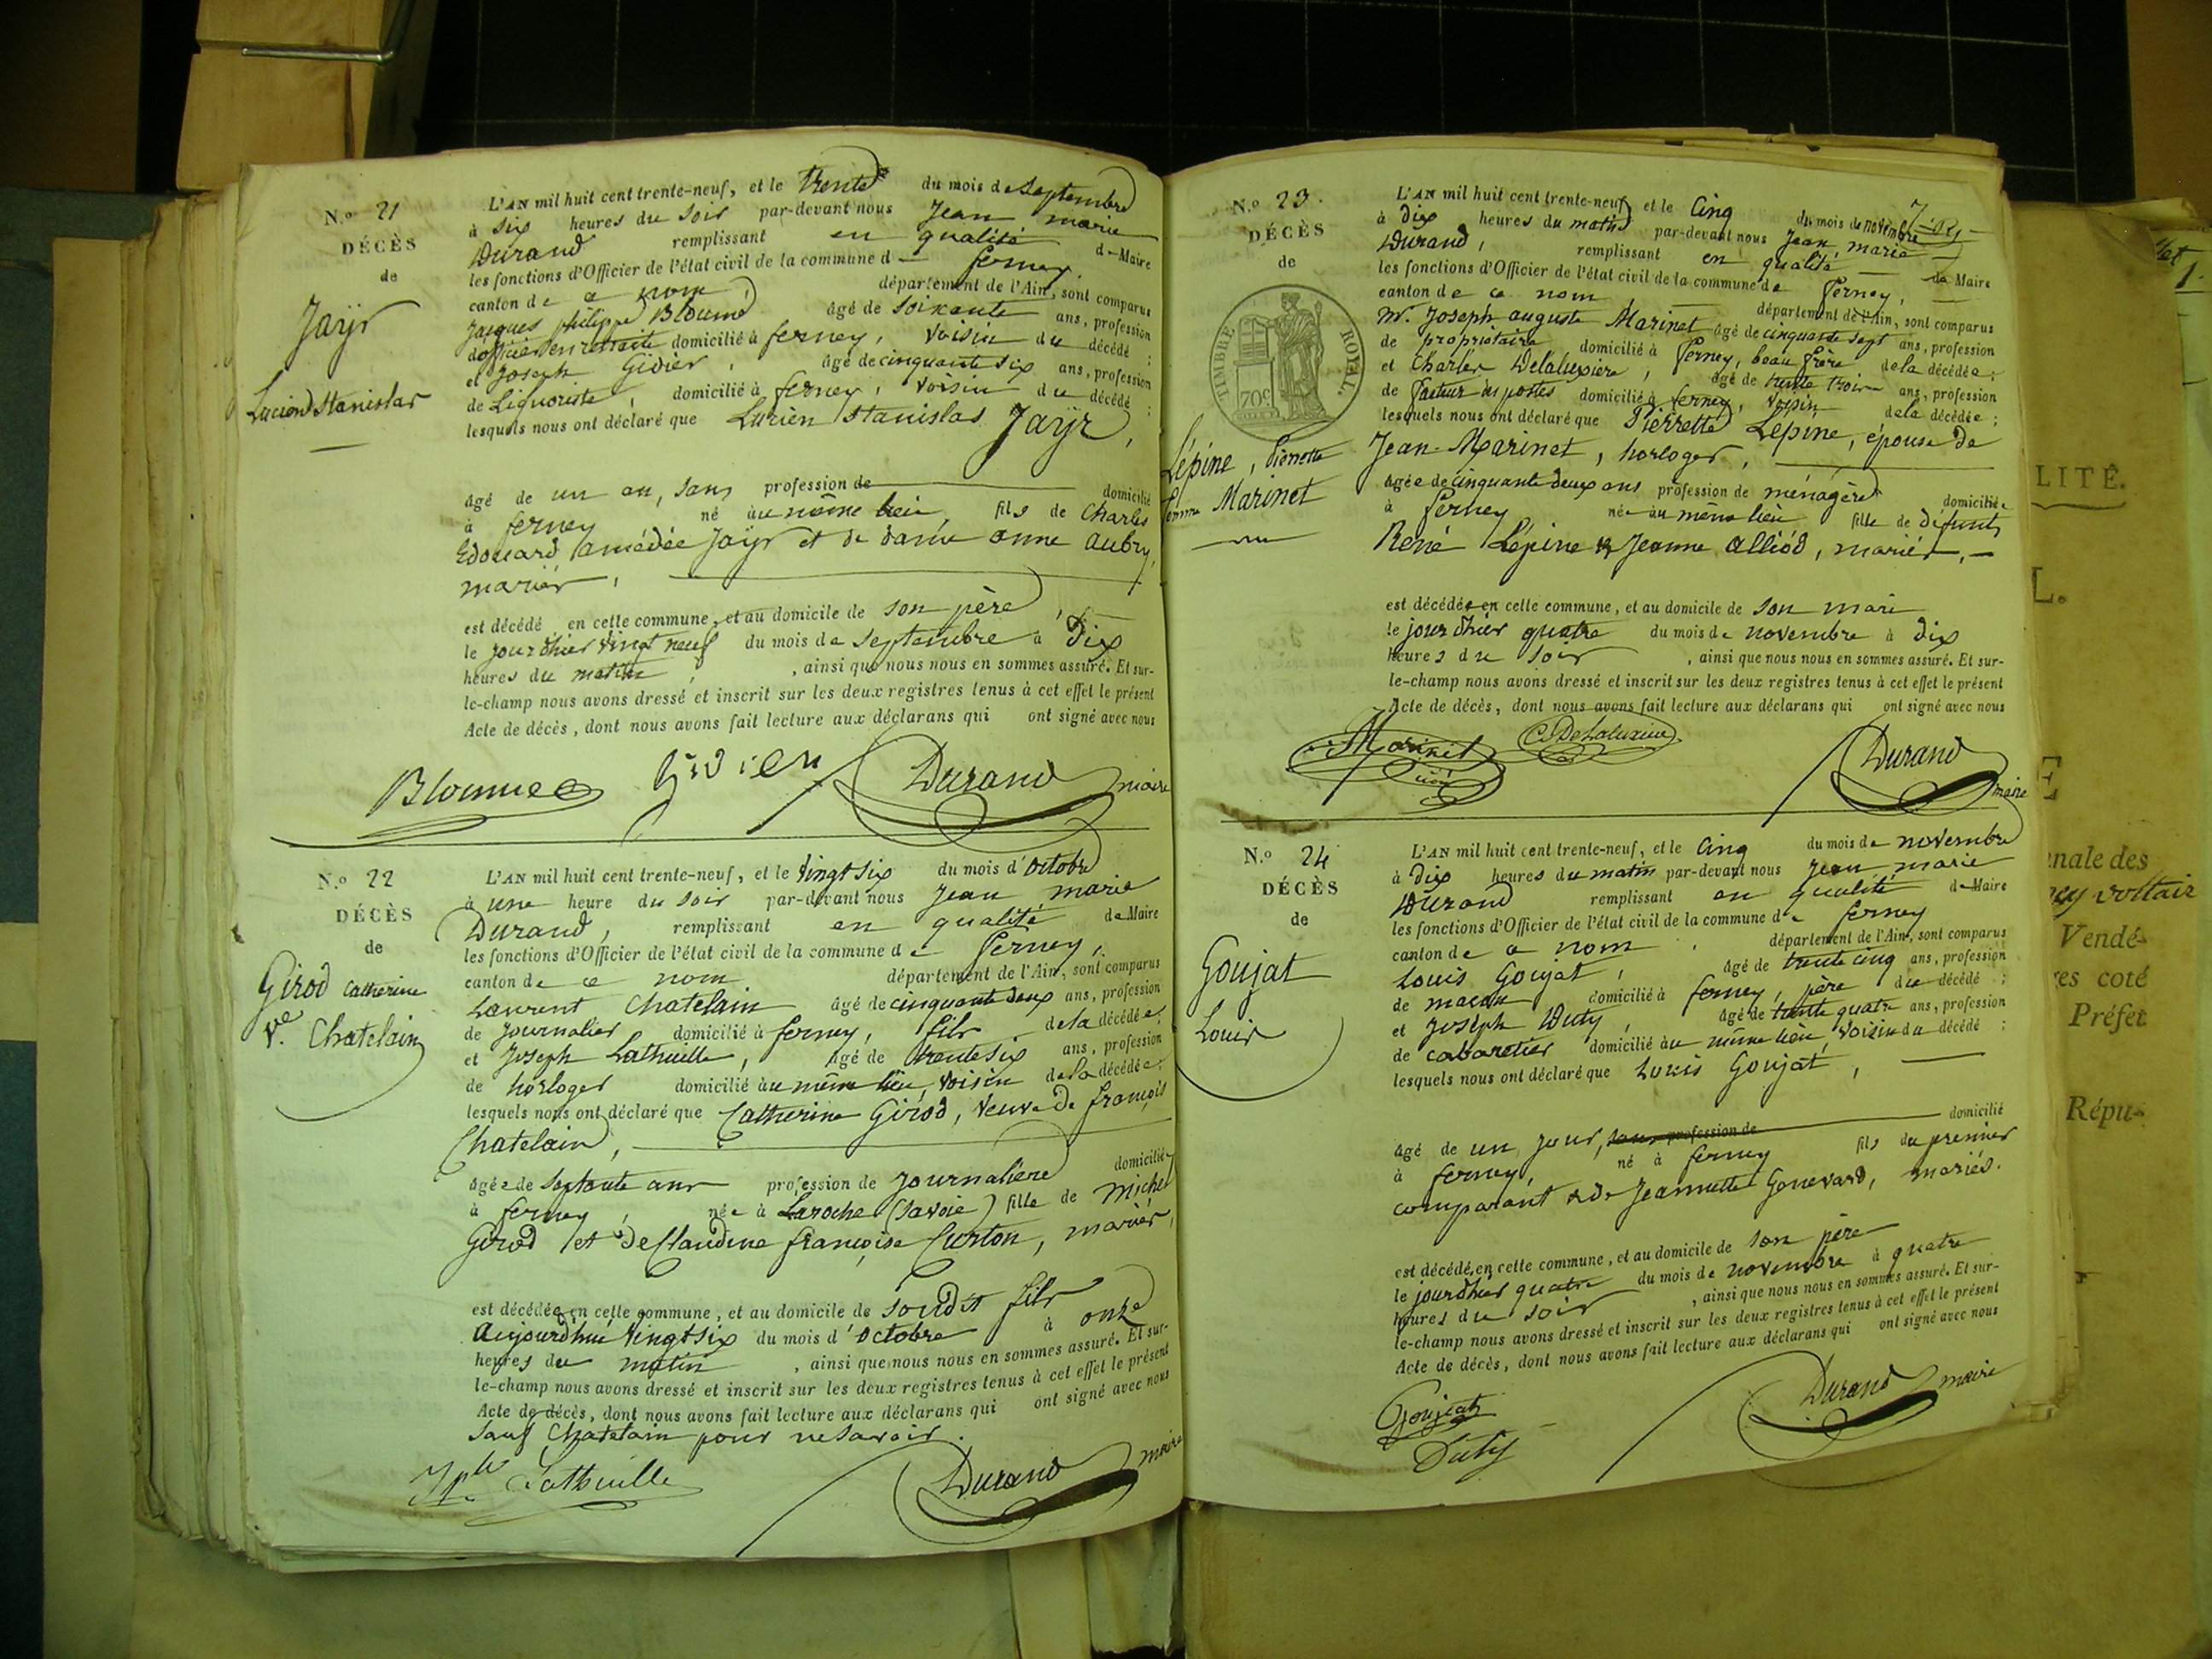 N.º 21
DÉCÈS
de
Jaÿr
Lucien Stanislas
L'AN mil huit cent trente-neuf, et le trente du mois de Septembre
à six heures du soir par-devant nous Jean marie
Durand remplissant en qualité de Maire
les fonctions d'Officier de l'état civil de la commune d ferney
canton de ce nom, département de l'Ain, sont comparus
Jacques philippe Bloume âgé de soixante ans, profession
d'officier en retraite domicilié à ferney, voisin du décédé ;
et Joseph Gidier, âgé de cinquante six ans, profession
de Liquoriste, domicilié à ferney, voisin du décédé ;
lesquels nous ont déclaré que Lucien Stanislas Jaÿr,
âgé de un an, sans profession de domicilié
à ferney né au même lieu, fils de Charles
Edouard amédée Jaÿr et de dame anne aubry,
mariés,
est décédé en cette commune, et au domicile de son père,
le jour d'hier vingt neuf du mois de septembre à dix
heures du matin, ainsi que nous nous en sommes assuré. Et sur-
le-champ nous avons dressé et inscrit sur les deux registres tenus à cet effet le présent
Acte de décès, dont nous avons fait lecture aux déclarans qui ont signé avec nous
Bloume Durand maire
N.º 22
DÉCÈS
de
Girod Catherine
Ve Chatelain
L'AN mil huit cent trente-neuf, et le vingt six du mois d'octobre
à une heure du soir par-devant nous Jean marie
Durand, remplissant en qualité de Maire
les fonctions d'Officier de l'état civil de la commune de Ferney,
canton de ce nom département de l'Ain, sont comparus
Laurent Chatelain âgé de cinquante deux ans, profession
de Journalier domicilié à ferney, fils de la décédée,
et Joseph Lathuille, âgé de trente six ans, profession
de horloger domicilié au même lieu, voisin de la décédée ;
lesquels nous ont déclaré que Catherine Girod, veuve de françois
Chatelain,
âgée de septante ans profession de Journalière domiciliée
à ferney, née à Laroche (Savoie) fille de Michel
Girod et de Claudine françoise Curton, mariés,
est décédée en cette commune, et au domicile de sondit fils
Aujourd'hui vingt six du mois d'octobre à onze
heures du matin, ainsi que nous nous en sommes assuré. Et sur-
le-champ nous avons dressé et inscrit sur les deux registres tenus à cet effet le présent
Acte de décès, dont nous avons fait lecture aux déclarans qui ont signé avec nous
sauf Chatelain pour ne savoir.
Jph Lathuille Durand maire
N.º 23.
DÉCÈS
de
TIMBRE ROYAL.
70c
Lépine, Pierrette
femme Marinet
L'AN mil huit cent trente-neuf, et le Cinq du mois de novembre
à dix heures du matin par-devant nous Jean marie
Durand, remplissant en qualité de Maire
les fonctions d'Officier de l'état civil de la commune de Ferney,
canton de ce nom département de l'Ain, sont comparus
Mr. Joseph auguste Marinet âgé de cinquante sept ans, profession
de propriétaire domicilié à Ferney, beau frère de la décédée ;
et Charles Delaluxière, âgé de trente trois ans, profession
de facteur des postes domicilié à ferney, voisin de la décédée ;
lesquels nous ont déclaré que Pierrette Lépine, épouse de
Jean Marinet, horloger,
âgée de cinquante deux ans profession de ménagère domiciliée
à ferney née au même lieu fille de défunts
René Lépine & Jeanne Alliod, mariés,
est décédée en cette commune, et au domicile de son mari
le jour d'hier quatre du mois de novembre à dix
heures du soir, ainsi que nous nous en sommes assuré. Et sur-
le-champ nous avons dressé et inscrit sur les deux registres tenus à cet effet le présent
Acte de décès, dont nous avons fait lecture aux déclarans qui ont signé avec nous
Marinet Delaluxière Durand maire
N.º 24
DÉCÈS
de
Goujat
Louis
L'AN mil huit cent trente-neuf, et le Cinq du mois de novembre
à dix heures du matin par-devant nous Jean marie
Durand remplissant en qualité de Maire
les fonctions d'Officier de l'état civil de la commune de ferney
canton de ce nom, département de l'Ain, sont comparus
Louis Goujat, âgé de trente cinq ans, profession
de maçon domicilié à ferney, père du décédé ;
et Joseph Duty, âgé de trente quatre ans, profession
de cabaretier domicilié au même lieu, voisin du décédé ;
lesquels nous ont déclaré que Louis Goujat,
âgé de un jour, sans profession de domicilié
à ferney, né à ferney fils du premier
comparant & de Jeannette Genevard, mariés.
est décédé en cette commune, et au domicile de son père
le jour d'hier quatre du mois de novembre à quatre
heures du soir, ainsi que nous nous en sommes assuré. Et sur-
le-champ nous avons dressé et inscrit sur les deux registres tenus à cet effet le présent
Acte de décès, dont nous avons fait lecture aux déclarans qui ont signé avec nous
Goujat
Duty
Durand maire
LITÉ.
L.
E
nale des
ney voltair
Vendé-
res coté
Préfet
Répu-